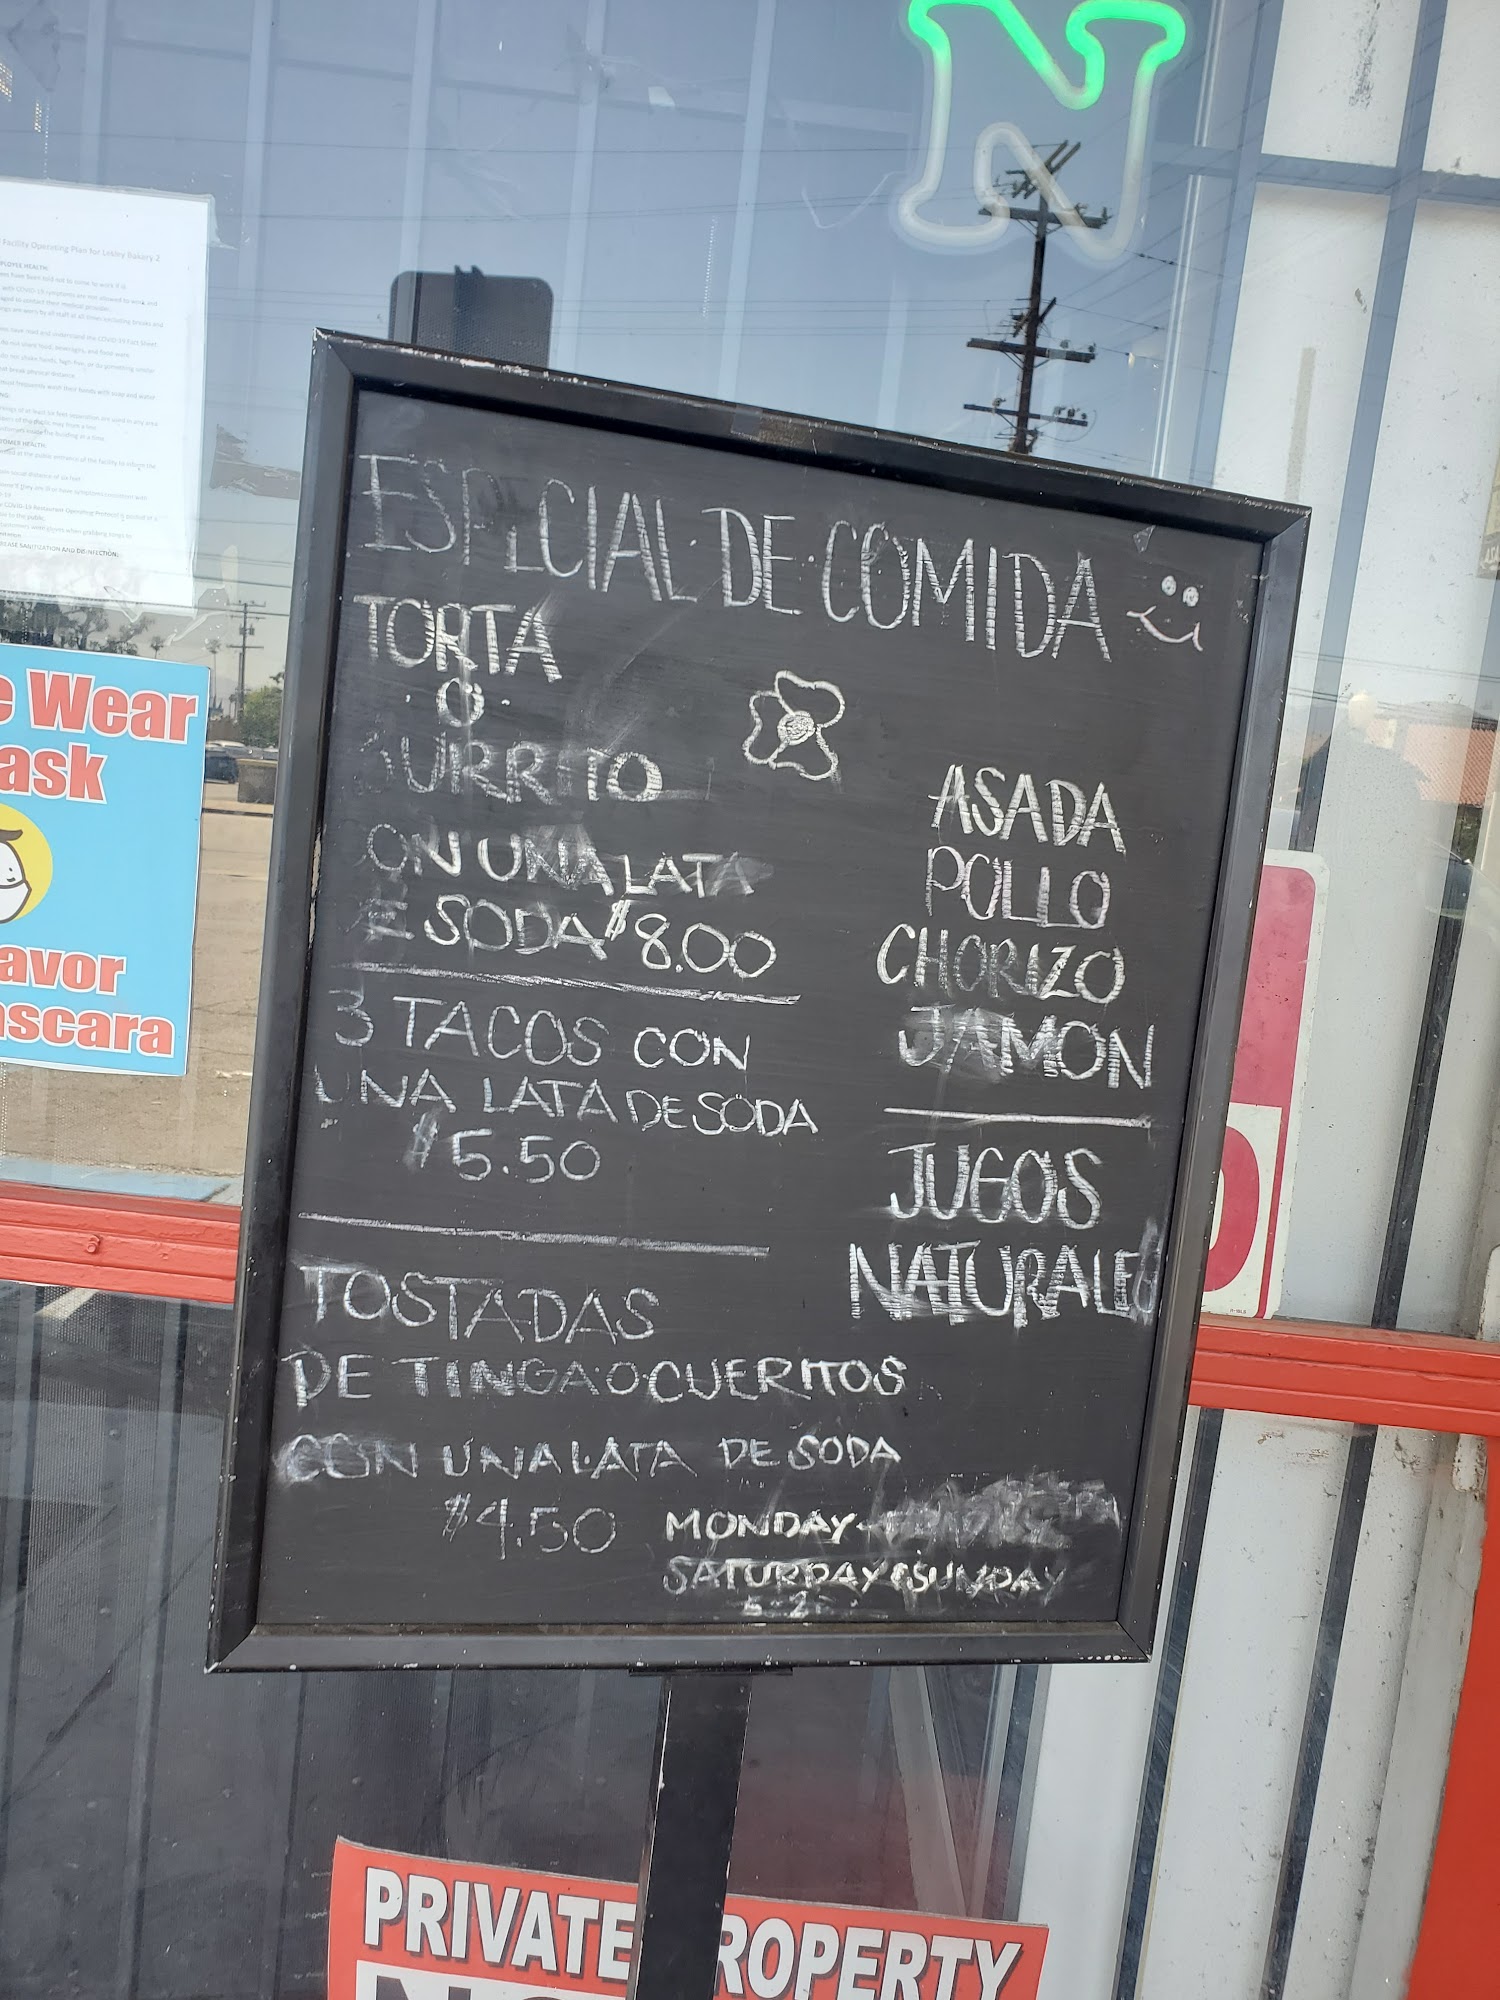 N
Facility Operating Plan for
Bakery 2
Wear
ask
avor
ascara
ESPECIAL·DE·COMIDA
TORTA
·O·
BURRITO
CON UNA LATA
DE SODA $8.00
3 TACOS CON
UNA LATA DE SODA
$5.50
TOSTADAS
DE TINGA·O CUERITOS
CON UNA LATA DE SODA
$4.50
ASADA
POLLO
CHORIZO
JAMON
JUGOS
NATURALES
MONDAY-
SATURDAY & SUNDAY
PRIVATE PROPERTY